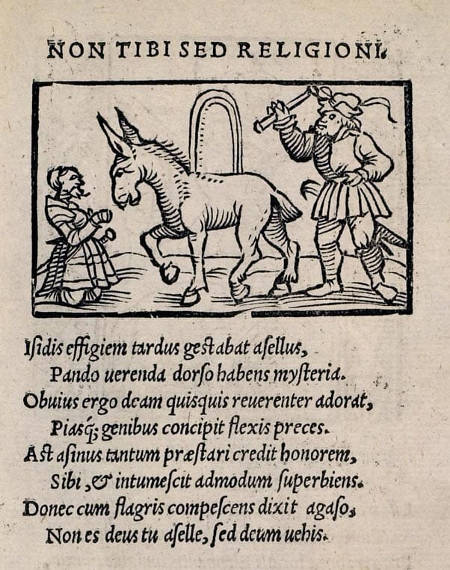 NON TIBI SED RELIGIONI.
Isidis effigiem tardus gestabat asellus,
Pando uerenda dorso habens mysteria.
Obuius ergo deam quisquis reuerenter adorat,
Piasq́; genibus concipit flexis preces.
Ast asinus tantum præstari credit honorem,
Sibi, & intumescit admodum superbiens.
Donec cum flagris compescens dixit agaso,
Non es deus tu aselle, sed deum uehis.